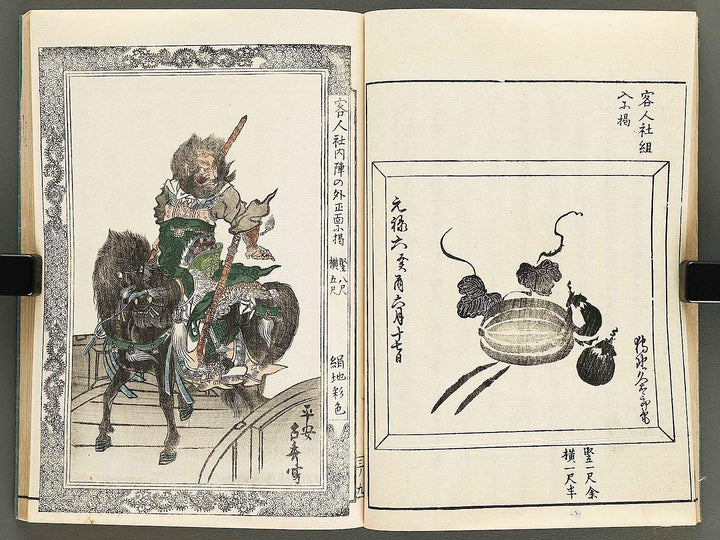 客人社組
入尓掲
元禄六癸酉六月十七日
竪一尺余
横一尺半
客人社内陣の外正面尓掲
竪八尺
横五尺
絹地彩色
平安